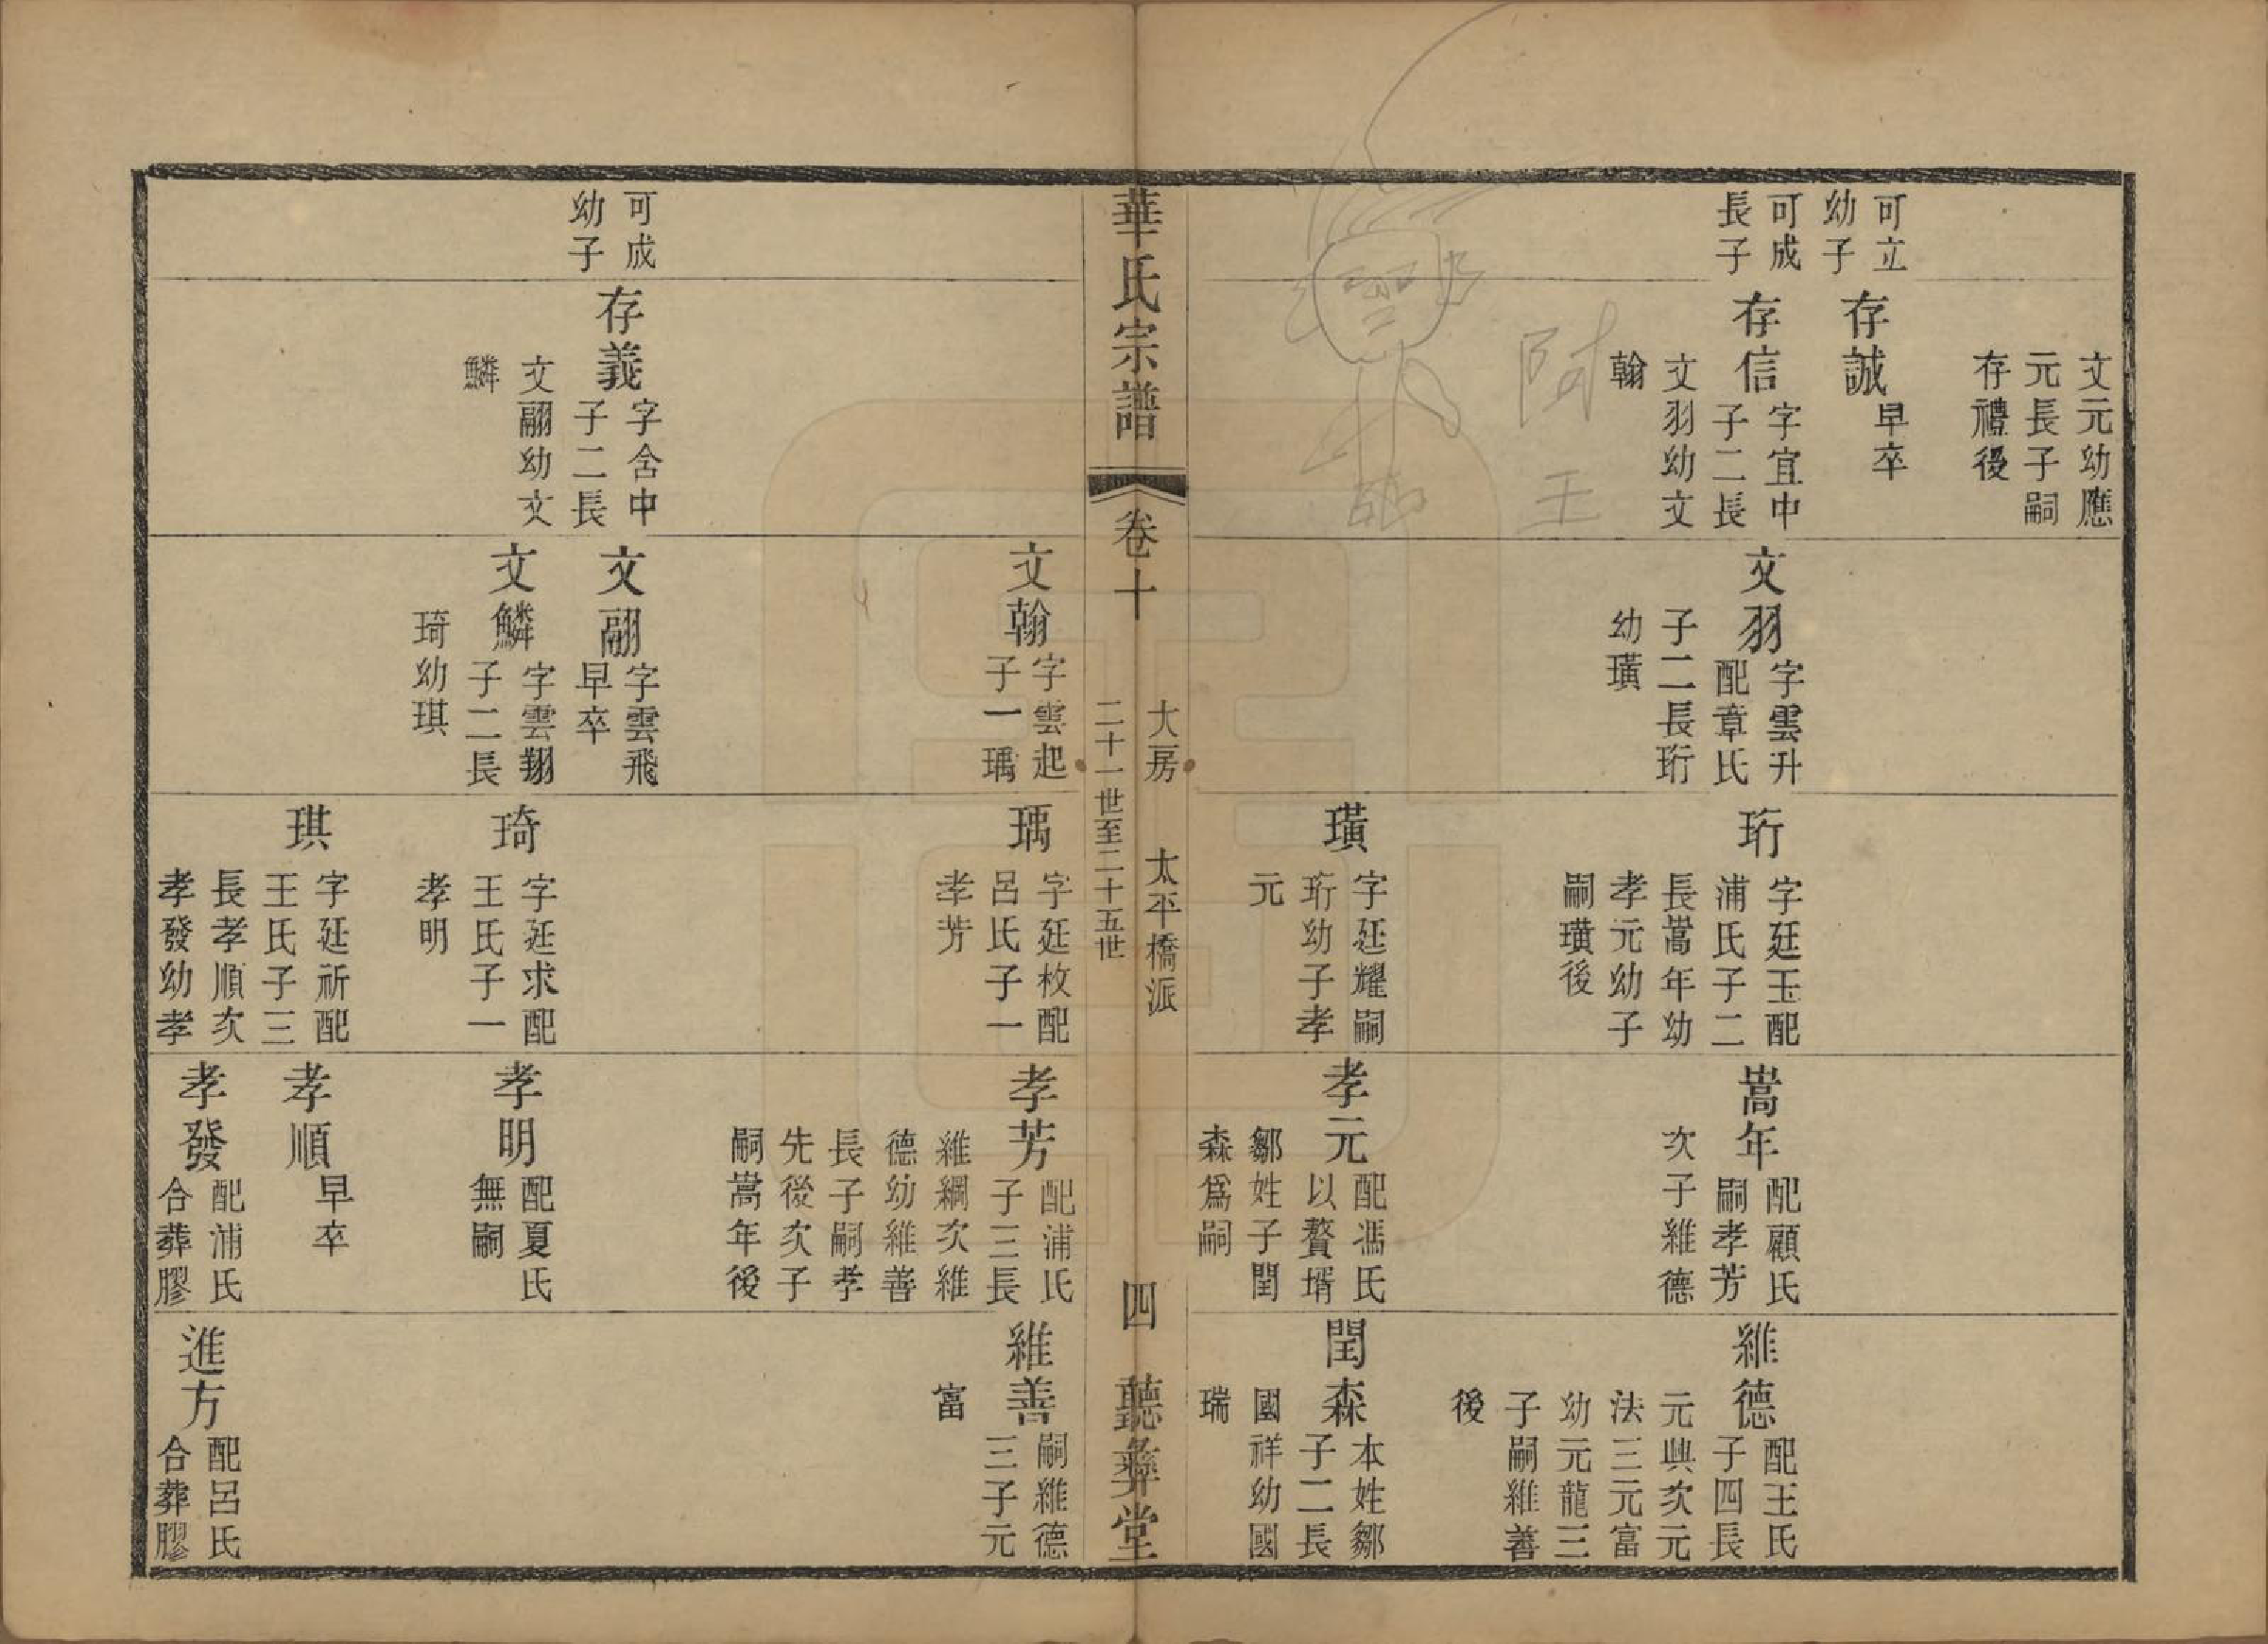 可立
幼子
可成
長子
文元幼應
元長子嗣
存禮後
存誠
早卒
存信
字宜中
子二長
文羽幼文
翰
文羽
字雲升
配章氏
子二長珩
幼璜
珩
字廷玉配
浦氏子二
長嵩年幼
孝元幼子
嗣璜後
璜
字廷耀嗣
珩幼子孝
元
嵩年
配顧氏
嗣孝芳
次子維德
孝元
配馮氏
以贅壻
鄒姓子閏
森爲嗣
維德
配王氏
子四長
元興次元
法三元富
幼元龍三
子嗣維善
後
閏森
本姓鄒
子二長
國祥幼國
瑞
華氏宗譜
卷十
大房 太平橋派
二十一世至二十五世
四
聽彝堂
可成
幼子
存義
字含中
子二長
文翮幼文
鱗
文翰
字雲起
子一瑀
文翮
字雲飛
早卒
文鱗
字雲翔
子二長
琦幼琪
瑀
字廷枚配
呂氏子一
孝芳
琦
字廷求配
王氏子一
孝明
琪
字廷祈配
王氏子三
長孝順次
孝發幼孝
孝芳
配浦氏
子三長
維綱次維
德幼維善
長子嗣孝
先後次子
嗣嵩年後
孝明
配夏氏
無嗣
孝順
早卒
孝發
配浦氏
合葬膠
維善
嗣維德
三子元
富
進方
配呂氏
合葬膠